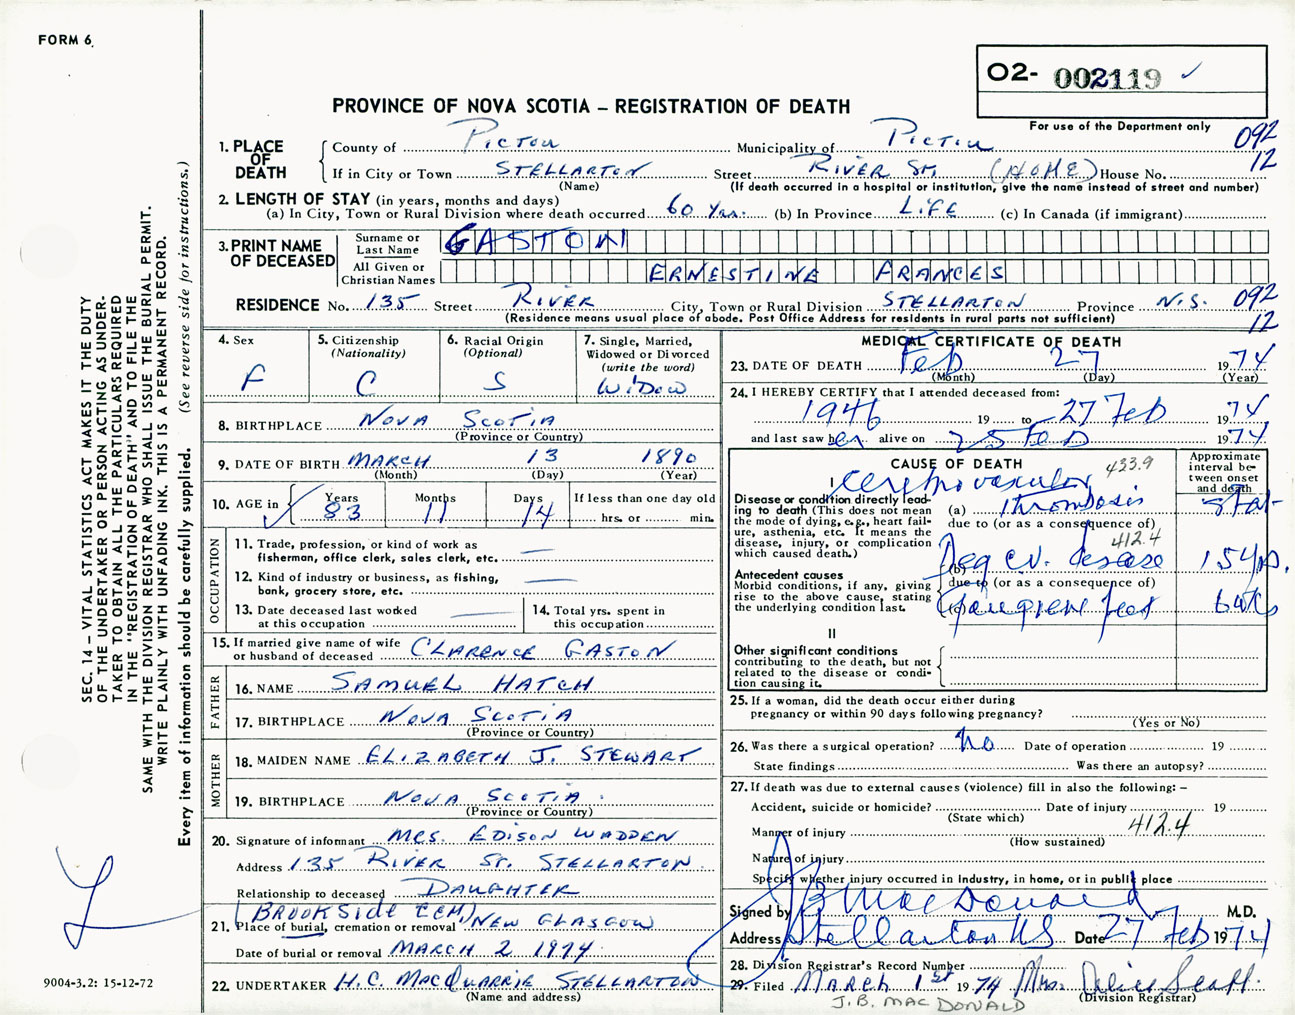 FORM 6
O2- 002119 ✓
PROVINCE OF NOVA SCOTIA – REGISTRATION OF DEATH
For use of the Department only
1. PLACE OF DEATH
County of Pictou Municipality of Pictou 092
If in City or Town STELLARTON Street RIVER St. (HOME) House No. 12
(Name) (If death occurred in a hospital or institution, give the name instead of street and number)
2. LENGTH OF STAY (in years, months and days)
(a) In City, Town or Rural Division where death occurred 60 Yrs. (b) In Province LIFE (c) In Canada (if immigrant)
3. PRINT NAME OF DECEASED
Surname or Last Name GASTON
All Given or Christian Names ERNESTINE FRANCES
RESIDENCE No. 135 Street RIVER City, Town or Rural Division STELLARTON Province N.S. 092
(Residence means usual place of abode. Post Office Address for residents in rural parts not sufficient) 12
4. Sex
F
5. Citizenship
(Nationality)
C
6. Racial Origin
(Optional)
S
7. Single, Married,
Widowed or Divorced
(write the word)
WIDOW
8. BIRTHPLACE NOVA SCOTIA
(Province or Country)
9. DATE OF BIRTH MARCH 13 1890
(Month) (Day) (Year)
10. AGE in Years Months Days If less than one day old
✓ 83 11 14 hrs. or min.
OCCUPATION
11. Trade, profession, or kind of work as
fisherman, office clerk, sales clerk, etc. —
12. Kind of industry or business, as fishing,
bank, grocery store, etc. —
13. Date deceased last worked
at this occupation —
14. Total yrs. spent in
this occupation
15. If married give name of wife
or husband of deceased CLARENCE GASTON
FATHER
16. NAME SAMUEL HATCH
17. BIRTHPLACE NOVA SCOTIA
(Province or Country)
MOTHER
18. MAIDEN NAME ELIZABETH J. STEWART
19. BIRTHPLACE NOVA SCOTIA
(Province or Country)
20. Signature of informant MRS. EDISON WADDEN
Address 135 RIVER ST. STELLARTON
Relationship to deceased DAUGHTER
(BROOKSIDE CEM.)
21. Place of burial, cremation or removal NEW GLASGOW
Date of burial or removal MARCH 2 1974
22. UNDERTAKER H.C. MACQUARRIE STELLARTON
(Name and address)
MEDICAL CERTIFICATE OF DEATH
23. DATE OF DEATH Feb 27 1974
(Month) (Day) (Year)
24. I HEREBY CERTIFY that I attended deceased from:
1946 19 to 27 Feb 1974
and last saw her alive on 25 Feb 1974
CAUSE OF DEATH 433.9
Approximate interval between onset and death
I
Disease or condition directly leading to death (This does not mean the mode of dying, e.g., heart failure, asthenia, etc. It means the disease, injury, or complication which caused death.)
Cerebrovascular
(a) thrombosis stat
due to (or as a consequence of)
412.4
Antecedent causes
Morbid conditions, if any, giving rise to the above cause, stating the underlying condition last.
(b) Deg C.V. disease 15 yrs.
due to (or as a consequence of)
(c) Gangrene feet 6 wks
II
Other significant conditions
contributing to the death, but not
related to the disease or condition causing it.
25. If a woman, did the death occur either during
pregnancy or within 90 days following pregnancy?
(Yes or No)
26. Was there a surgical operation? no Date of operation 19
State findings Was there an autopsy?
27. If death was due to external causes (violence) fill in also the following: –
Accident, suicide or homicide? Date of injury 19
(State which) 412.4
Manner of injury
(How sustained)
Nature of injury
Specify whether injury occurred in industry, in home, or in public place
Signed by JB MacDonald M.D.
Address Stellarton NS Date 27 Feb 1974
28. Division Registrar's Record Number
29. Filed MARCH 1st 1974 Mrs. Scott
(Division Registrar)
J.B. MACDONALD
SEC. 14 – VITAL STATISTICS ACT MAKES IT THE DUTY
OF THE UNDERTAKER OR PERSON ACTING AS UNDER-
TAKER TO OBTAIN ALL THE PARTICULARS REQUIRED
IN THE "REGISTRATION OF DEATH" AND TO FILE THE
SAME WITH THE DIVISION REGISTRAR WHO SHALL ISSUE THE BURIAL PERMIT.
WRITE PLAINLY WITH UNFADING INK. THIS IS A PERMANENT RECORD.
Every item of information should be carefully supplied. (See reverse side for instructions.)
9004-3.2: 15-12-72